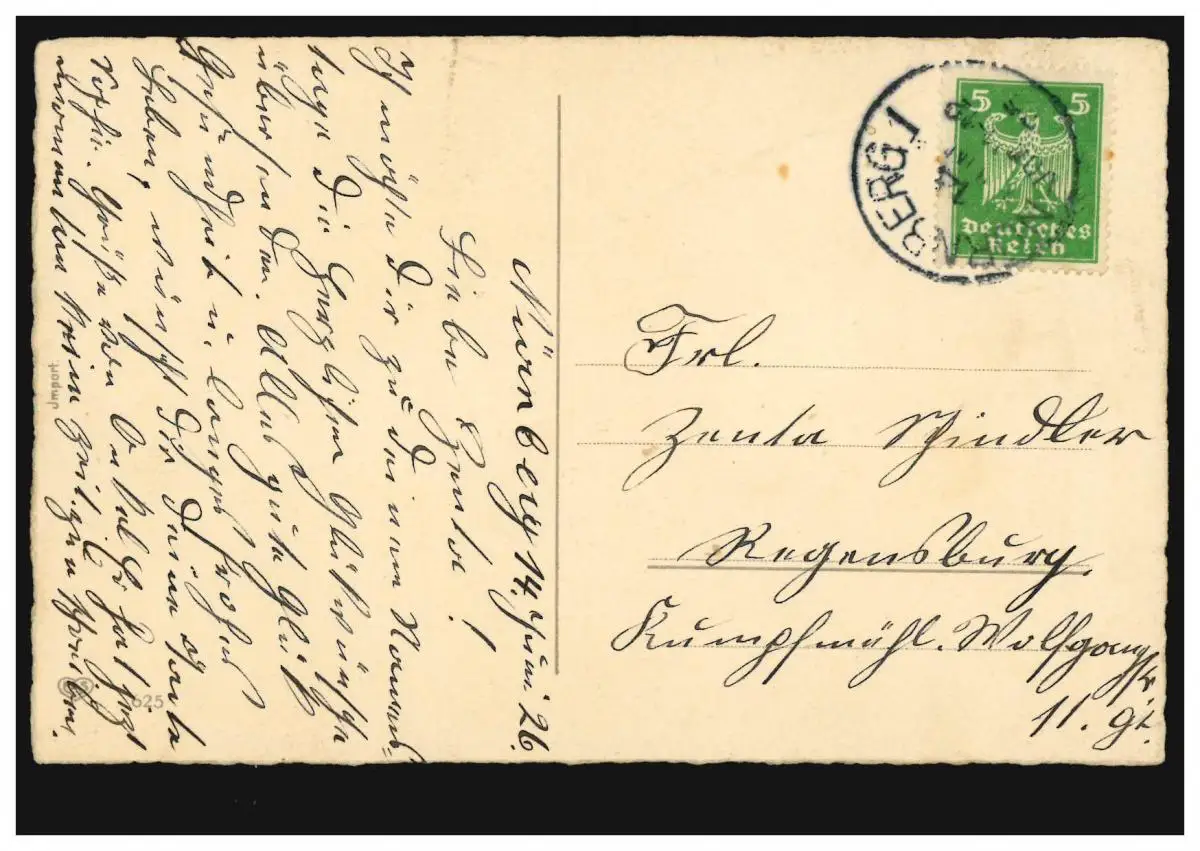 Nürnberg 14. Juni 26.
Liebe Zenta!
Ich möchte Dir zu Deinem Namens-
tage die herzlichsten Glückwünsche
übersenden. Alles gute Glück
Gesundheit u. langes frohes
Leben, wünscht Dir Deine
Grüße Onkel hat jetzt
keine Zeit zum Schreiben.
Jmport.
625
5 5
Deutsches
Reich
NÜRNBERG 1
Frl.
Zenta Schindler
Regensburg.
Kumpfmühl. Wolfgangstr.
11. gt.